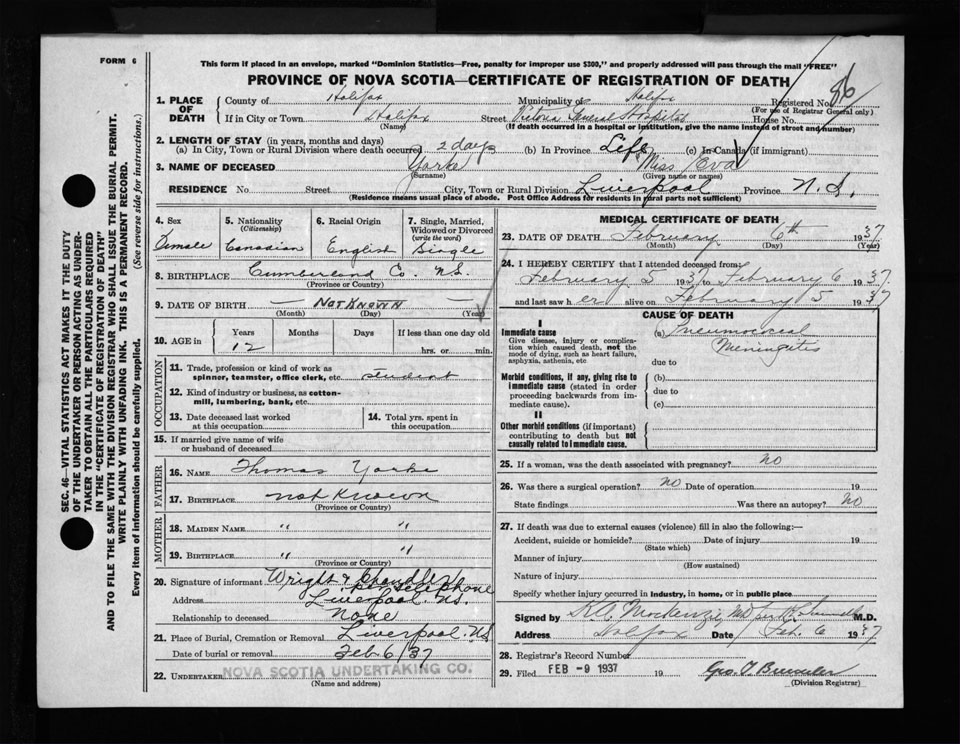 FORM 6
This form if placed in an envelope, marked "Dominion Statistics—Free, penalty for improper use $300," and properly addressed will pass through the mail "FREE"
PROVINCE OF NOVA SCOTIA—CERTIFICATE OF REGISTRATION OF DEATH
SEC. 46—VITAL STATISTICS ACT MAKES IT THE DUTY
OF THE UNDERTAKER OR PERSON ACTING AS UNDER-
TAKER TO OBTAIN ALL THE PARTICULARS REQUIRED
IN THE "CERTIFICATE OF REGISTRATION OF DEATH"
AND TO FILE THE SAME WITH THE DIVISION REGISTRAR WHO SHALL ISSUE THE BURIAL PERMIT.
WRITE PLAINLY WITH UNFADING INK. THIS IS A PERMANENT RECORD.
Every item of information should be carefully supplied. (See reverse side for instructions.)
1. PLACE OF DEATH County of Halifax Municipality of Halifax Registered No. 86
(For use of Registrar General only)
If in City or Town Halifax Street Victoria General Hospital House No.
(Name) (If death occurred in a hospital or institution, give the name instead of street and number)
2. LENGTH OF STAY (in years, months and days)
(a) In City, Town or Rural Division where death occurred 2 days (b) In Province Life (c) In Canada (if immigrant)
3. NAME OF DECEASED Yorke Miss Eva
(Surname) (Given name or names)
RESIDENCE No Street City, Town or Rural Division Liverpool Province N.S.
(Residence means usual place of abode. Post Office Address for residents in rural parts not sufficient)
4. Sex Female
5. Nationality (Citizenship) Canadian
6. Racial Origin English
7. Single, Married, Widowed or Divorced (write the word) Single
8. BIRTHPLACE Cumberland Co. N.S.
(Province or Country)
9. DATE OF BIRTH — Not Known —
(Month) (Day) (Year)
10. AGE in Years 12 Months Days If less than one day old hrs. or min.
OCCUPATION
11. Trade, profession or kind of work as spinner, teamster, office clerk, etc. student
12. Kind of industry or business, as cotton-mill, lumbering, bank, etc.
13. Date deceased last worked at this occupation
14. Total yrs. spent in this occupation
15. If married give name of wife or husband of deceased
FATHER
16. NAME Thomas Yorke
17. BIRTHPLACE not known
(Province or Country)
MOTHER
18. MAIDEN NAME " "
19. BIRTHPLACE " "
(Province or Country)
20. Signature of informant Wright & Chandler
per telephone
Address Liverpool N.S.
Relationship to deceased None
21. Place of Burial, Cremation or Removal Liverpool N.S.
Date of burial or removal Feb 6/37
22. UNDERTAKER NOVA SCOTIA UNDERTAKING CO.
(Name and address)
MEDICAL CERTIFICATE OF DEATH
23. DATE OF DEATH February 6th 1937
(Month) (Day) (Year)
24. I HEREBY CERTIFY that I attended deceased from:
February 5 1937 to February 6 1937
and last saw her alive on February 5 1937
CAUSE OF DEATH
I
Immediate cause
Give disease, injury or complication which caused death, not the mode of dying, such as heart failure, asphyxia, asthenia, etc
(a) Pneumococcal
Meningitis
due to
Morbid conditions, if any, giving rise to immediate cause (stated in order proceeding backwards from immediate cause).
(b)
due to
(c)
II
Other morbid conditions (if important) contributing to death but not causally related to immediate cause.
25. If a woman, was the death associated with pregnancy? No
26. Was there a surgical operation? No Date of operation 19
State findings Was there an autopsy? No
27. If death was due to external causes (violence) fill in also the following:—
Accident, suicide or homicide? Date of injury 19
(State which)
Manner of injury
(How sustained)
Nature of injury
Specify whether injury occurred in industry, in home, or in public place
Signed by MacKenzie MD per M.D.
Address Halifax Date Feb. 6 1937
28. Registrar's Record Number
29. Filed FEB -9 1937 19
(Division Registrar)